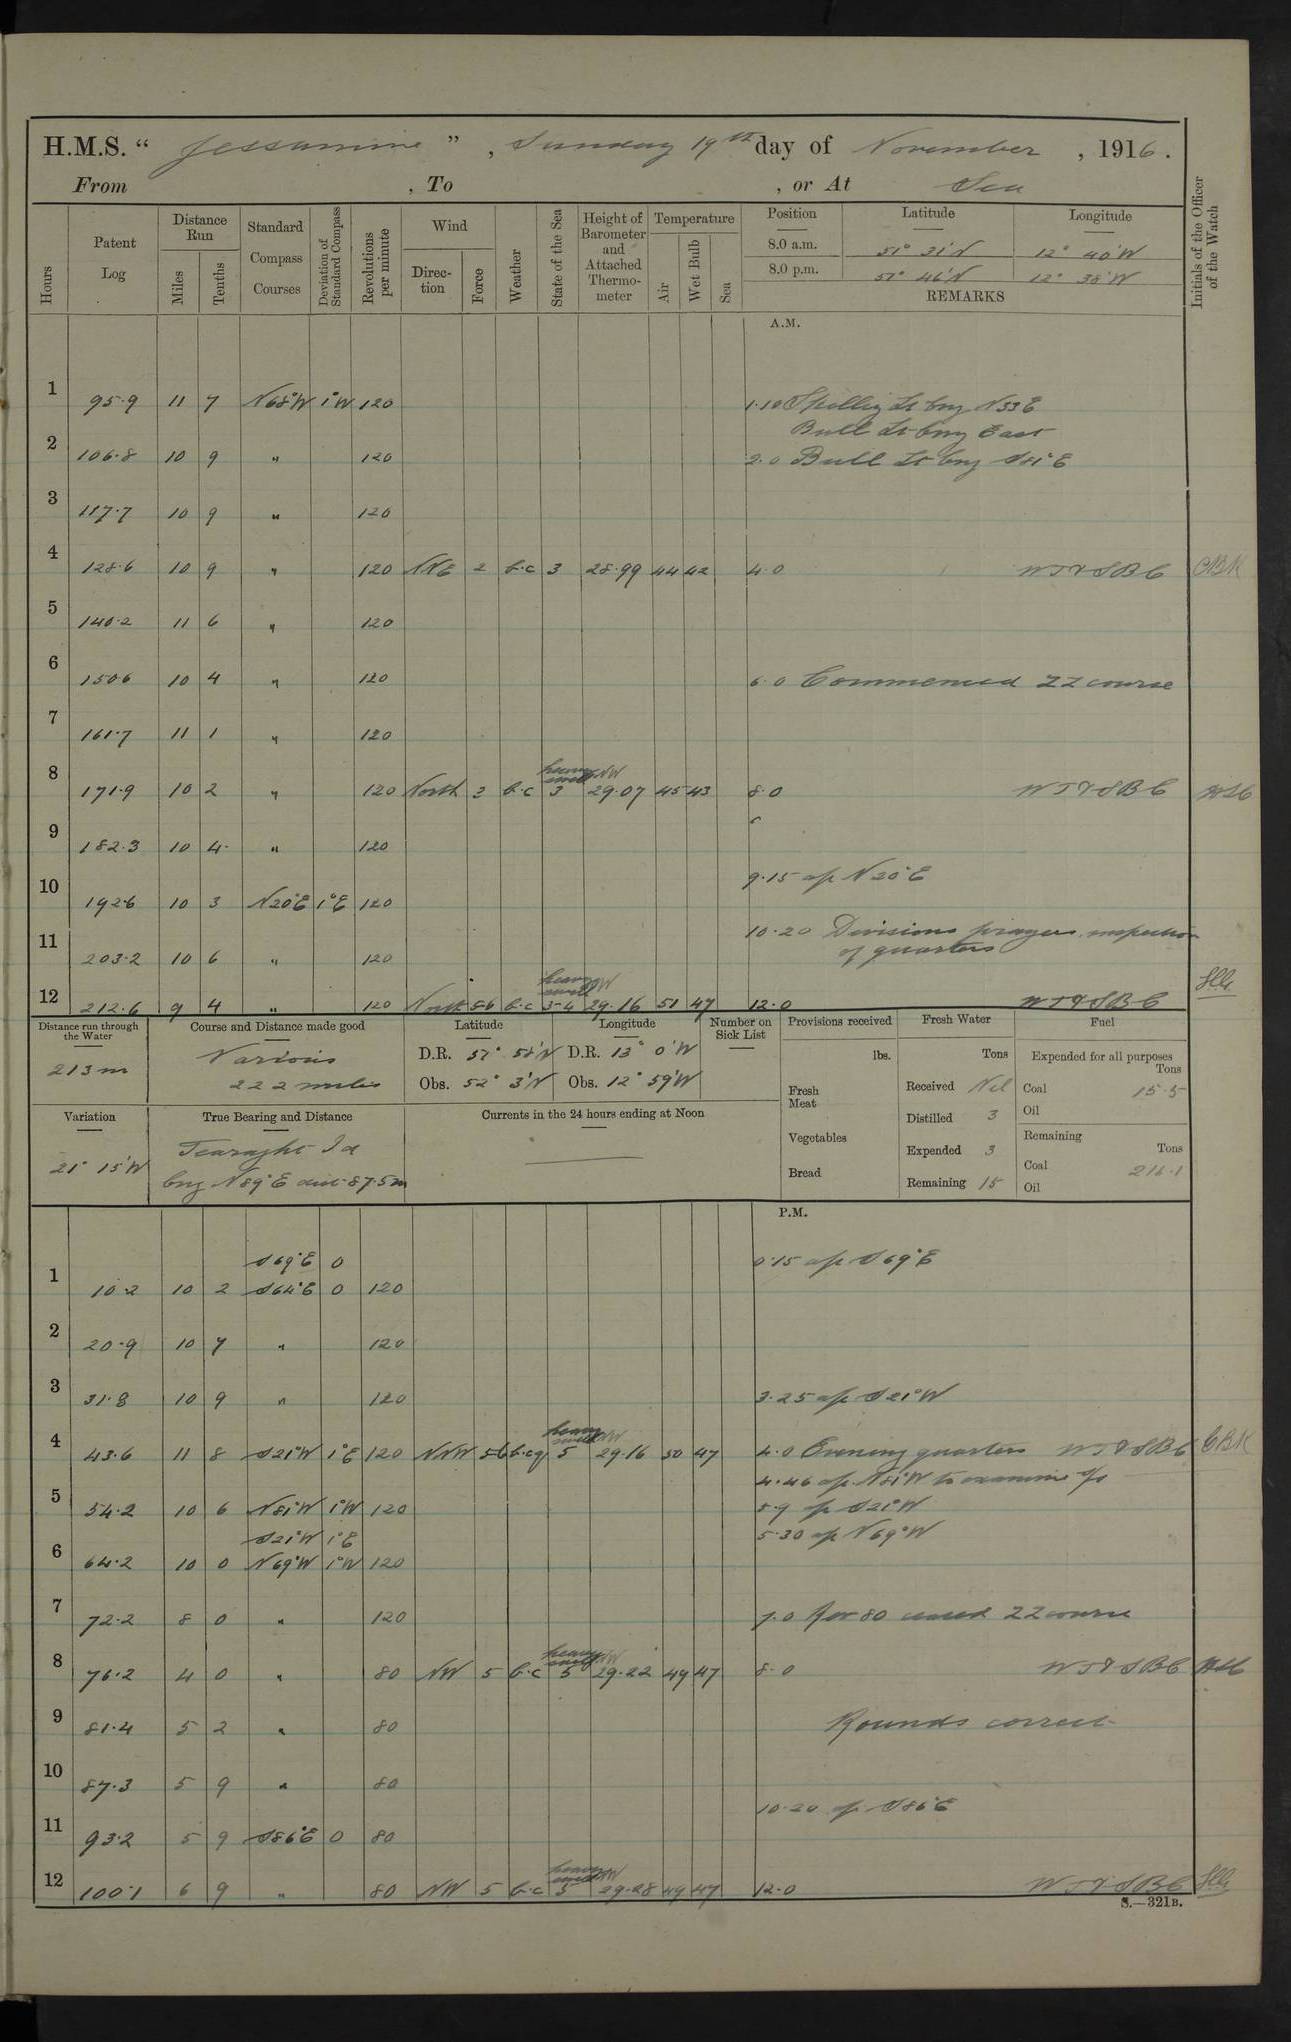 H.M.S. “ Jessamine ” , Sunday 19th day of November , 1916 .
From , To , or At Sea
Hours Patent Log Distance Run Miles Tenths Standard Compass Courses Deviation of Standard Compass Revolutions per minute Wind Direc-tion Force Weather State of the Sea Height of Barometer and Attached Thermo-meter Temperature Air Wet Bulb Sea Position Latitude Longitude Initials of the Officer of the Watch
8.0 a.m. 51° 31'N 12° 40'W
8.0 p.m. 51° 46'N 12° 38'W
REMARKS
A.M.
1 95.9 11 7 N68°W 1°W 120 1.10 Skellig Lt brg N33E
Bull Lt brg East
2 106.8 10 9 " 120 2.0 Bull Lt brg S81°E
3 117.7 10 9 " 120
4 128.6 10 9 " 120 NNE 2 b.c 3 28.99 44 42 4.0 WT & SBC CBK
5 140.2 11 6 " 120
6 150.6 10 4 " 120 6.0 Commenced ZZ course
7 161.7 11 1 " 120
heavy swell NW
8 171.9 10 2 " 120 North 3 b.c 3 29.07 45 43 8.0 WT & SBC
9 182.3 10 4 " 120
9.15 a/c N20°E
10 192.6 10 3 N20°E 1°E 120
10.20 Divisions prayers inspection
11 203.2 10 6 " 120 of quarters
heavy swell NW
12 212.6 9 4 " 120 North 5-6 b.c 3-4 29.16 51 47 12.0 WT & SBC
Distance run through the Water Course and Distance made good Latitude Longitude Number on Sick List Provisions received Fresh Water Fuel
213m Various 222 miles D.R. 51° 58'N D.R. 13° 0'W
Obs. 52° 3'N Obs. 12° 59'W
lbs. Tons Expended for all purposes Tons
Fresh Meat Received Nil Coal 15.5
Distilled 3 Oil
Variation True Bearing and Distance Currents in the 24 hours ending at Noon
Vegetables Expended 3 Remaining Tons
21° 15'W Tearaght Id
brg N89°E dist 87.5m
Bread Remaining 15 Coal 216.1
Oil
P.M.
S69°E 0 0.15 a/c S69°E
1 10.2 10 2 S64°E 0 120
2 20.9 10 7 " 120
3 31.8 10 9 " 120 3.25 a/c S21°W
heavy swell NW
4 43.6 11 8 S21°W 1°E 120 NNW 5-6 b.c.q 5 29.16 50 47 4.0 Evening quarters WT & SBC CBK
4.46 a/c N81°W to examine s/s
5 54.2 10 6 N81°W 1°W 120 5.9 a/c S21°W
S21°W 1°E 5.30 a/c N69°W
6 64.2 10 0 N69°W 1°W 120
7 72.2 8 0 " 120 7.0 Rev 80 ceased ZZ course
heavy swell NW
8 76.2 4 0 " 80 NW 5 b.c 5 29.22 49 47 8.0 WT & SBC
9 81.4 5 2 " 80 Rounds correct
10 87.3 5 9 " 80
10.20 a/c S86°E
11 93.2 5 9 S86°E 0 80
heavy swell NW
12 100.1 6 9 " 80 NW 5 b.c 5 29.28 49 47 12.0 WT & SBC
S.—321B.